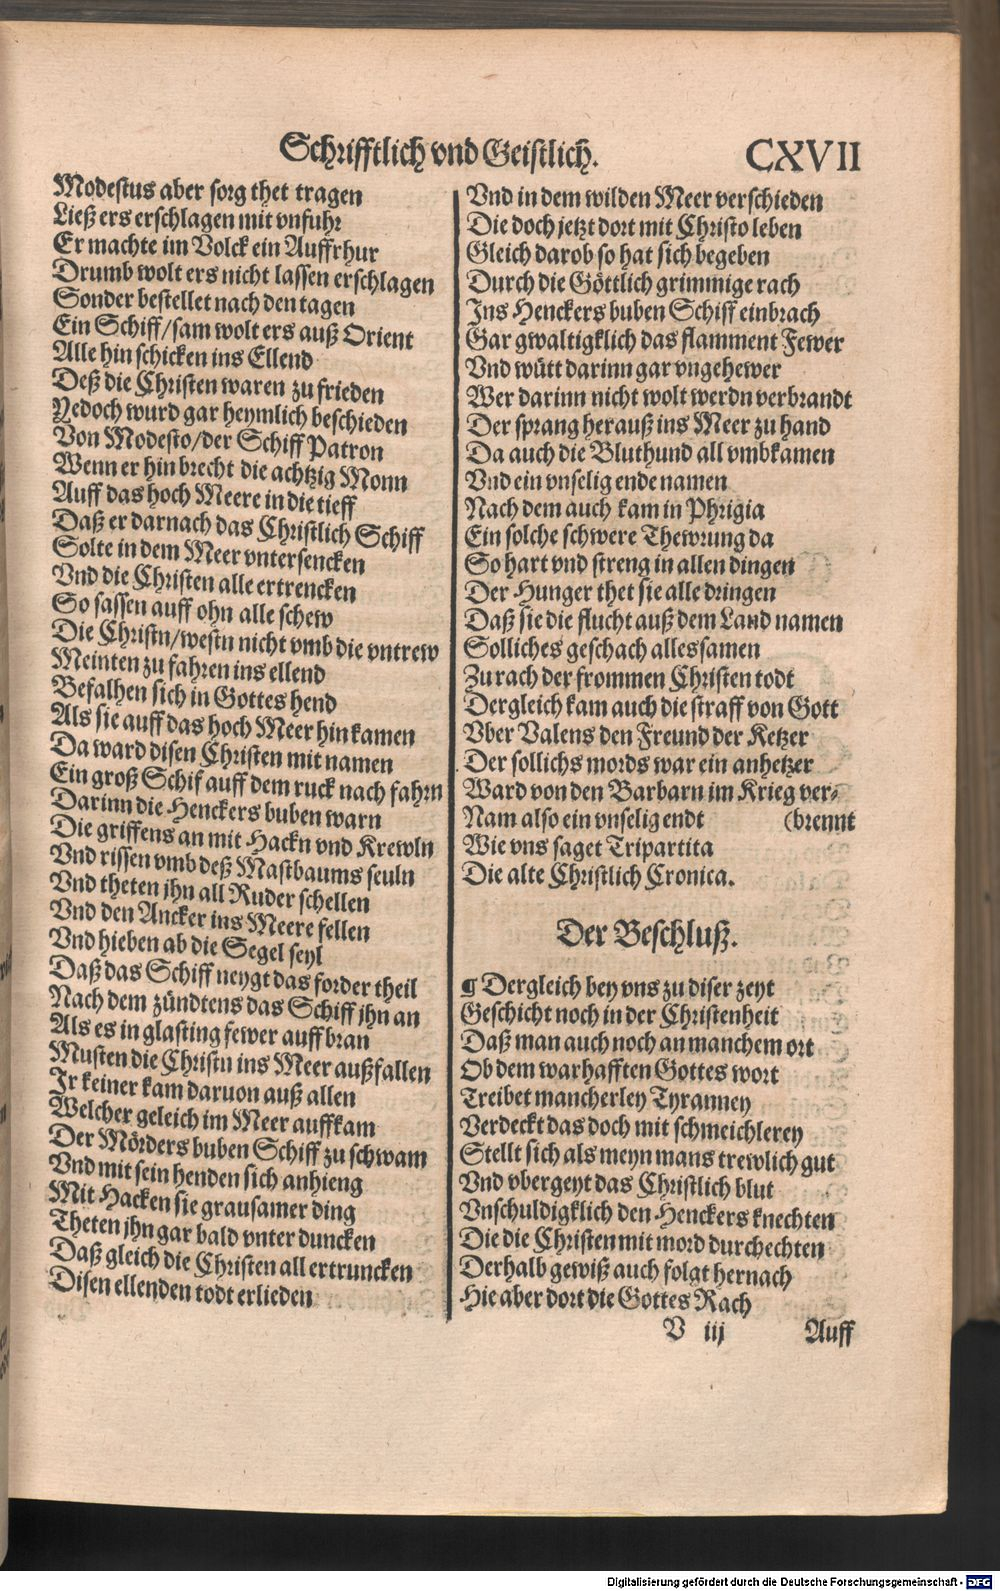 Schrifftlich vnd Geistlich. CXVII
Modestus aber sorg thet tragen
Ließ ers erschlagen mit vnfuhr
Er machte im Volck ein Auffrhur
Drumb wolt ers nicht lassen erschlagen
Sonder bestellet nach den tagen
Ein Schiff/sam wolt ers auß Orient
Alle hin schicken ins Ellend
Deß die Christen waren zu frieden
Yedoch wurd gar heymlich beschieden
Von Modesto/der Schiff Patron
Wenn er hin brecht die achtzig Monn
Auff das hoch Meere in die tieff
Daß er darnach das Christlich Schiff
Solte in dem Meer vntersencken
Vnd die Christen alle ertrencken
So sassen auff ohn alle schew
Die Christn/westn nicht vmb die vntrew
Meinten zu fahren ins ellend
Befalhen sich in Gottes hend
Als sie auff das hoch Meer hin kamen
Da ward disen Christen mit namen
Ein groß Schif auff dem ruck nach fahrn
Darinn die Henckers buben warn
Die griffens an mit Hackn vnd Krewln
Vnd rissen vmb deß Mastbaums seuln
Vnd theten jhn all Ruder schellen
Vnd den Ancker ins Meere fellen
Vnd hieben ab die Segel seyl
Daß das Schiff neygt das forder theil
Nach dem zündtens das Schiff jhn an
Als es in glasting fewer auff bran
Musten die Christn ins Meer außfallen
Ir keiner kam daruon auß allen
Welcher geleich im Meer auffkam
Der Mörders buben Schiff zu schwam
Vnd mit sein henden sich anhieng
Mit Hacken sie grausamer ding
Theten jhn gar bald vnter duncken
Daß gleich die Christen all ertruncken
Disen ellenden todt erlieden
Vnd in dem wilden Meer verschieden
Die doch jetzt dort mit Christo leben
Gleich darob so hat sich begeben
Durch die Göttlich grimmige rach
Ins Henckers buben Schiff einbrach
Gar gwaltigklich das flamment Fewer
Vnd wütt darinn gar vngehewer
Wer darinn nicht wolt werdn verbrandt
Der sprang herauß ins Meer zu hand
Da auch die Bluthund all vmbkamen
Vnd ein vnselig ende namen
Nach dem auch kam in Phrigia
Ein solche schwere Thewrung da
So hart vnd streng in allen dingen
Der Hunger thet sie alle dringen
Daß sie die flucht auß dem Land namen
Solliches geschach alles samen
Zu rach der frommen Christen todt
Dergleich kam auch die straff von Gott
Vber Valens den Freund der Ketzer
Der sollichs mords war ein anhetzer
Ward von den Barbarn im Krieg ver-
Nam also ein vnselig endt (brennt
Wie vns saget Tripartita
Die alte Christlich Cronica.
Der Beschluß.
¶ Dergleich bey vns zu diser zeyt
Geschicht noch in der Christenheit
Daß man auch noch an manchem ort
Ob dem warhafften Gottes wort
Treibet mancherley Tyranney
Verdeckt das doch mit schmeichlerey
Stellt sich als meyn mans trewlich gut
Vnd vbergeyt das Christlich blut
Vnschuldigklich den Henckers knechten
Die die Christen mit mord durchechten
Derhalb gewiß auch folgt hernach
Hie aber dort die Gottes Rach
V iij Auff
Digitalisierung gefördert durch die Deutsche Forschungsgemeinschaft - DFG